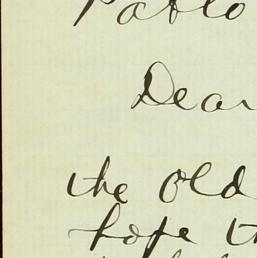 Pablo
Dear
the old
hope